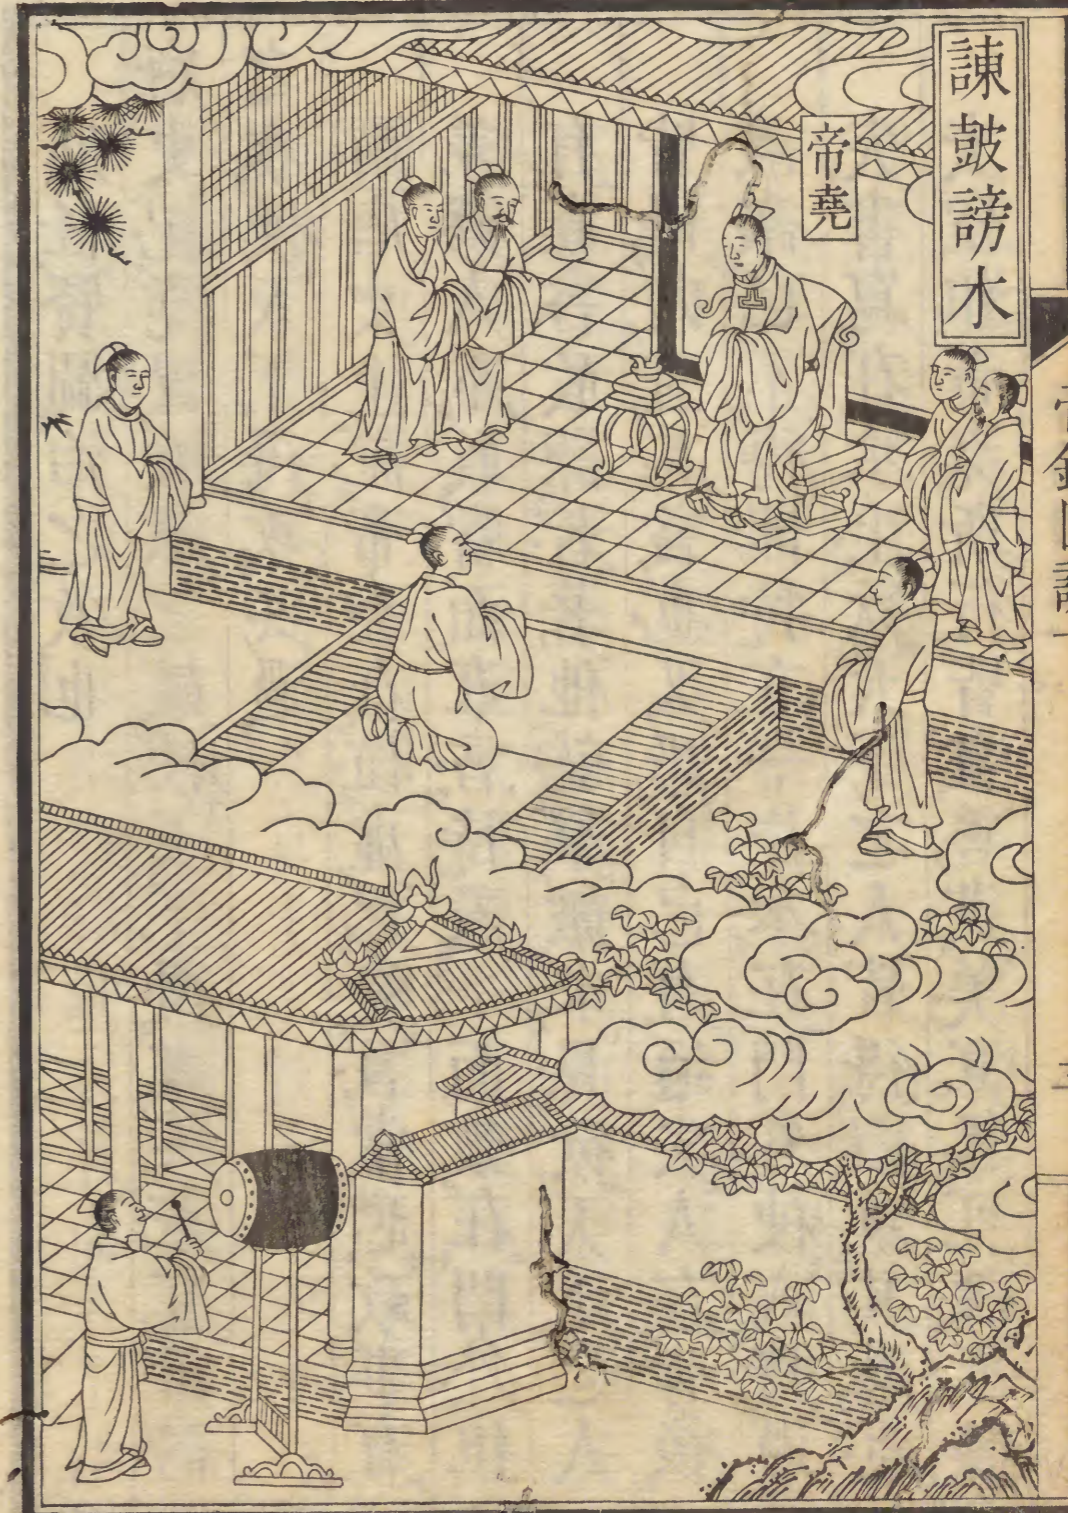 諫皷謗木
帝堯